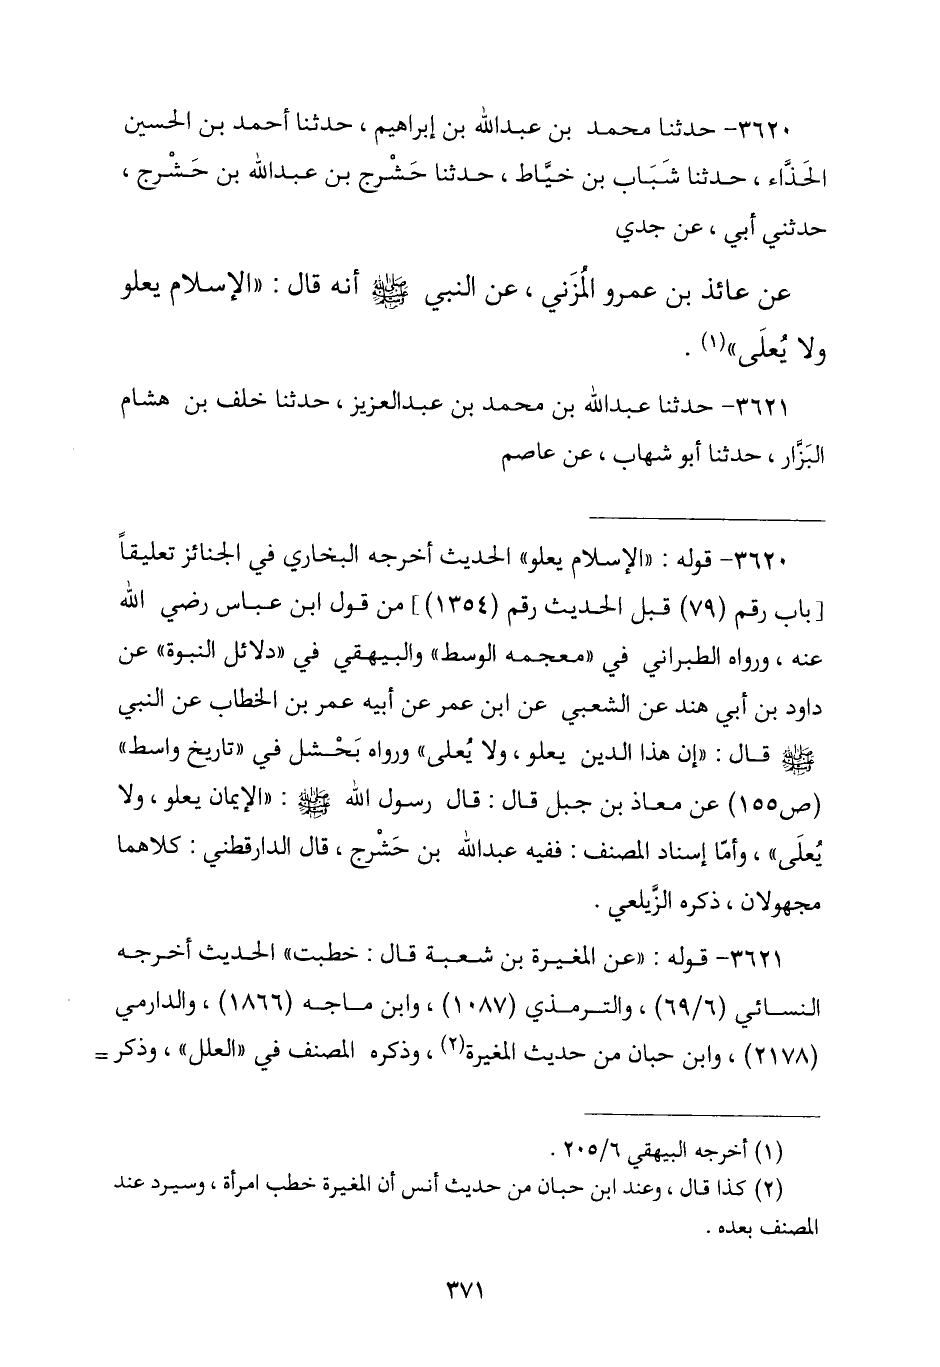 ٣٦٢٠- حدثنا محمد بن عبدالله بن إبراهيم ، حدثنا أحمد بن الحسين
الحَذَّاء ، حدثنا شَبَاب بن خيَّاط ، حدثنا حَشْرج بن عبدالله بن حَشْرج ،
حدثني أبي ، عن جدي
عن عائذ بن عمرو المُزَني ، عن النبي ﷺ أنه قال : «الإسلام يعلو
ولا يُعلَى»(١) .
٣٦٢١- حدثنا عبدالله بن محمد بن عبدالعزيز ، حدثنا خلف بن هشام
البَزَّار ، حدثنا أبو شهاب ، عن عاصم
٣٦٢٠- قوله : «الإسلام يعلو» الحديث أخرجه البخاري في الجنائز تعليقاً
[باب رقم (٧٩) قبل الحديث رقم (١٣٥٤)] من قول ابن عباس رضي الله
عنه ، ورواه الطبراني في «معجمه الوسط» والبيهقي في «دلائل النبوة» عن
داود بن أبي هند عن الشعبي عن ابن عمر عن أبيه عمر بن الخطاب عن النبي
ﷺ قال : «إن هذا الدين يعلو ، ولا يُعلى» ورواه بَحْشل في «تاريخ واسط»
(ص١٥٥) عن معاذ بن جبل قال : قال رسول الله ﷺ : «الإيمان يعلو ، ولا
يُعلَى» ، وأمّا إسناد المصنف : ففيه عبدالله بن حَشْرج ، قال الدارقطني : كلاهما
مجهولان ، ذكره الزَّيلعي .
٣٦٢١- قوله : «عن المغيرة بن شعبة قال : خطبت» الحديث أخرجه
النسائي (٦٩/٦) ، والترمذي (١٠٨٧) ، وابن ماجه (١٨٦٦) ، والدارمي
(٢١٧٨) ، وابن حبان من حديث المغيرة(٢) ، وذكره المصنف في «العلل» ، وذكر =
(١) أخرجه البيهقي ٢٠٥/٦ .
(٢) كذا قال ، وعند ابن حبان من حديث أنس أن المغيرة خطب امرأة ، وسيرد عند
المصنف بعده .
٣٧١